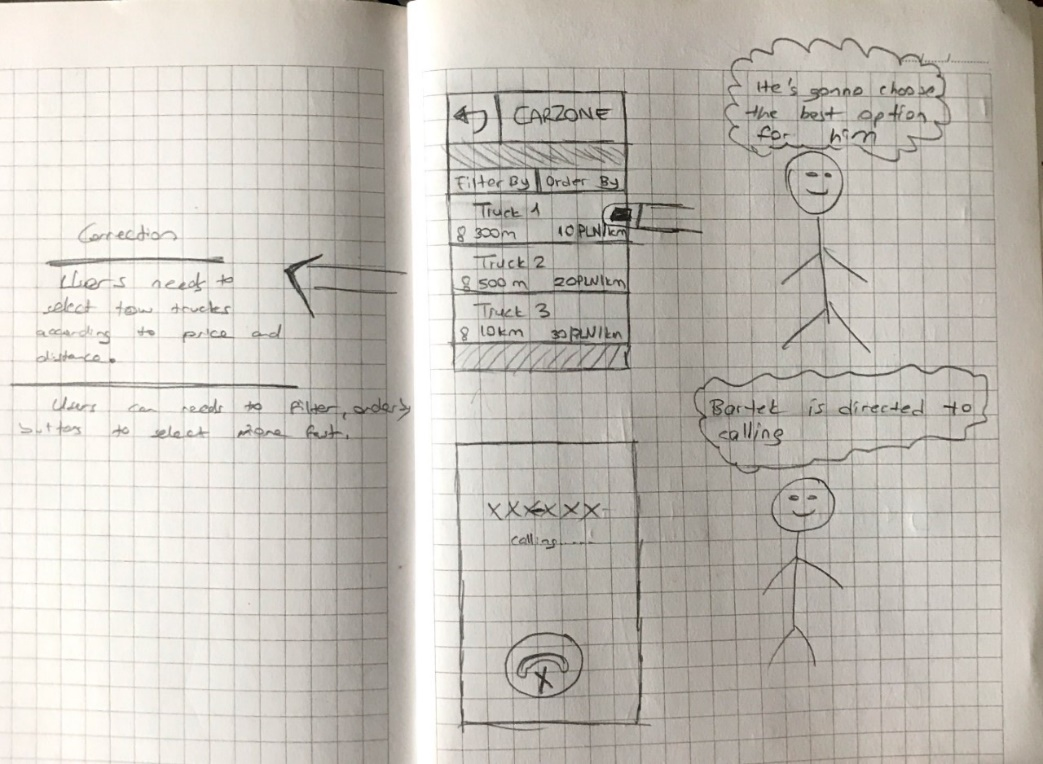 Correction
Users needs to
select tow trucks
according to price and
distance.
Users can needs to filter, order by
buttons to select more fast.
CARZONE
Filter By Order By
Truck 1
300m 10PLN/km
Truck 2
500m 20PLN/km
Truck 3
10km 30PLN/km
He's gonna choose
the best option
for him
XXXXXX
calling......
Bartek is directed to
calling